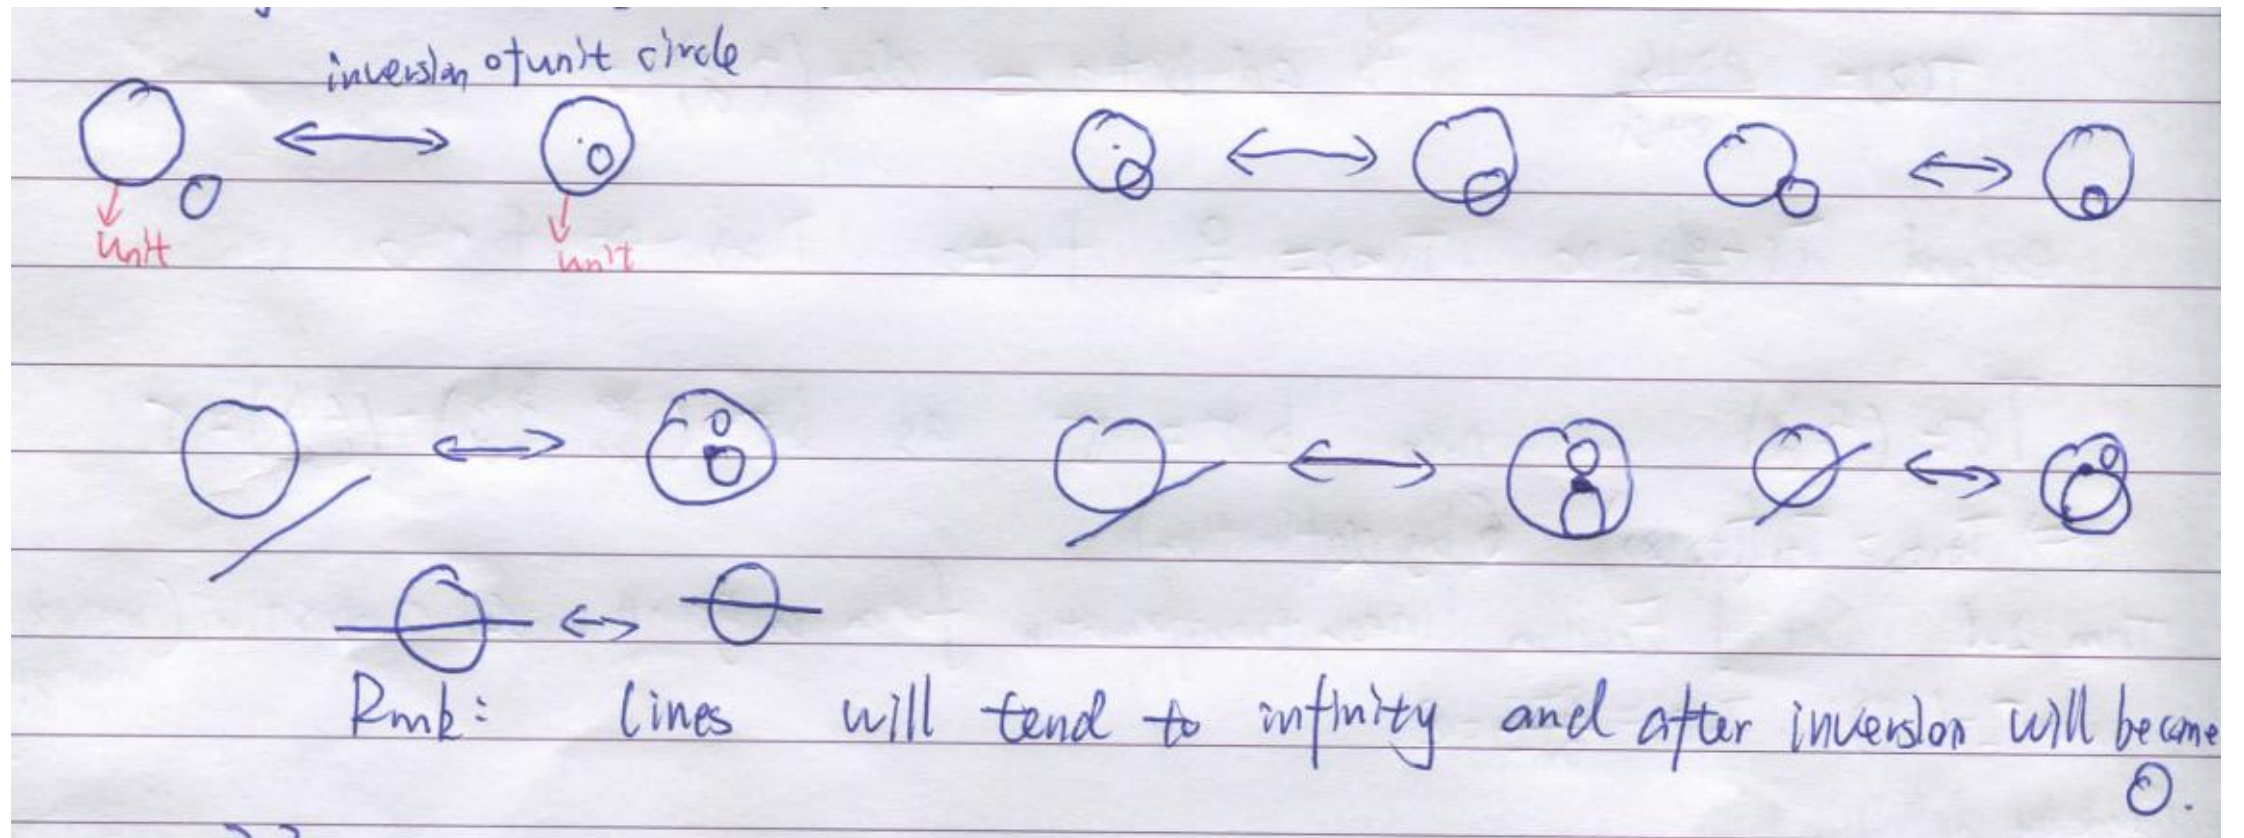 inversion of unit circle
unit
unit
O
Rmk: lines will tend to infinity and after inversion will become
O.